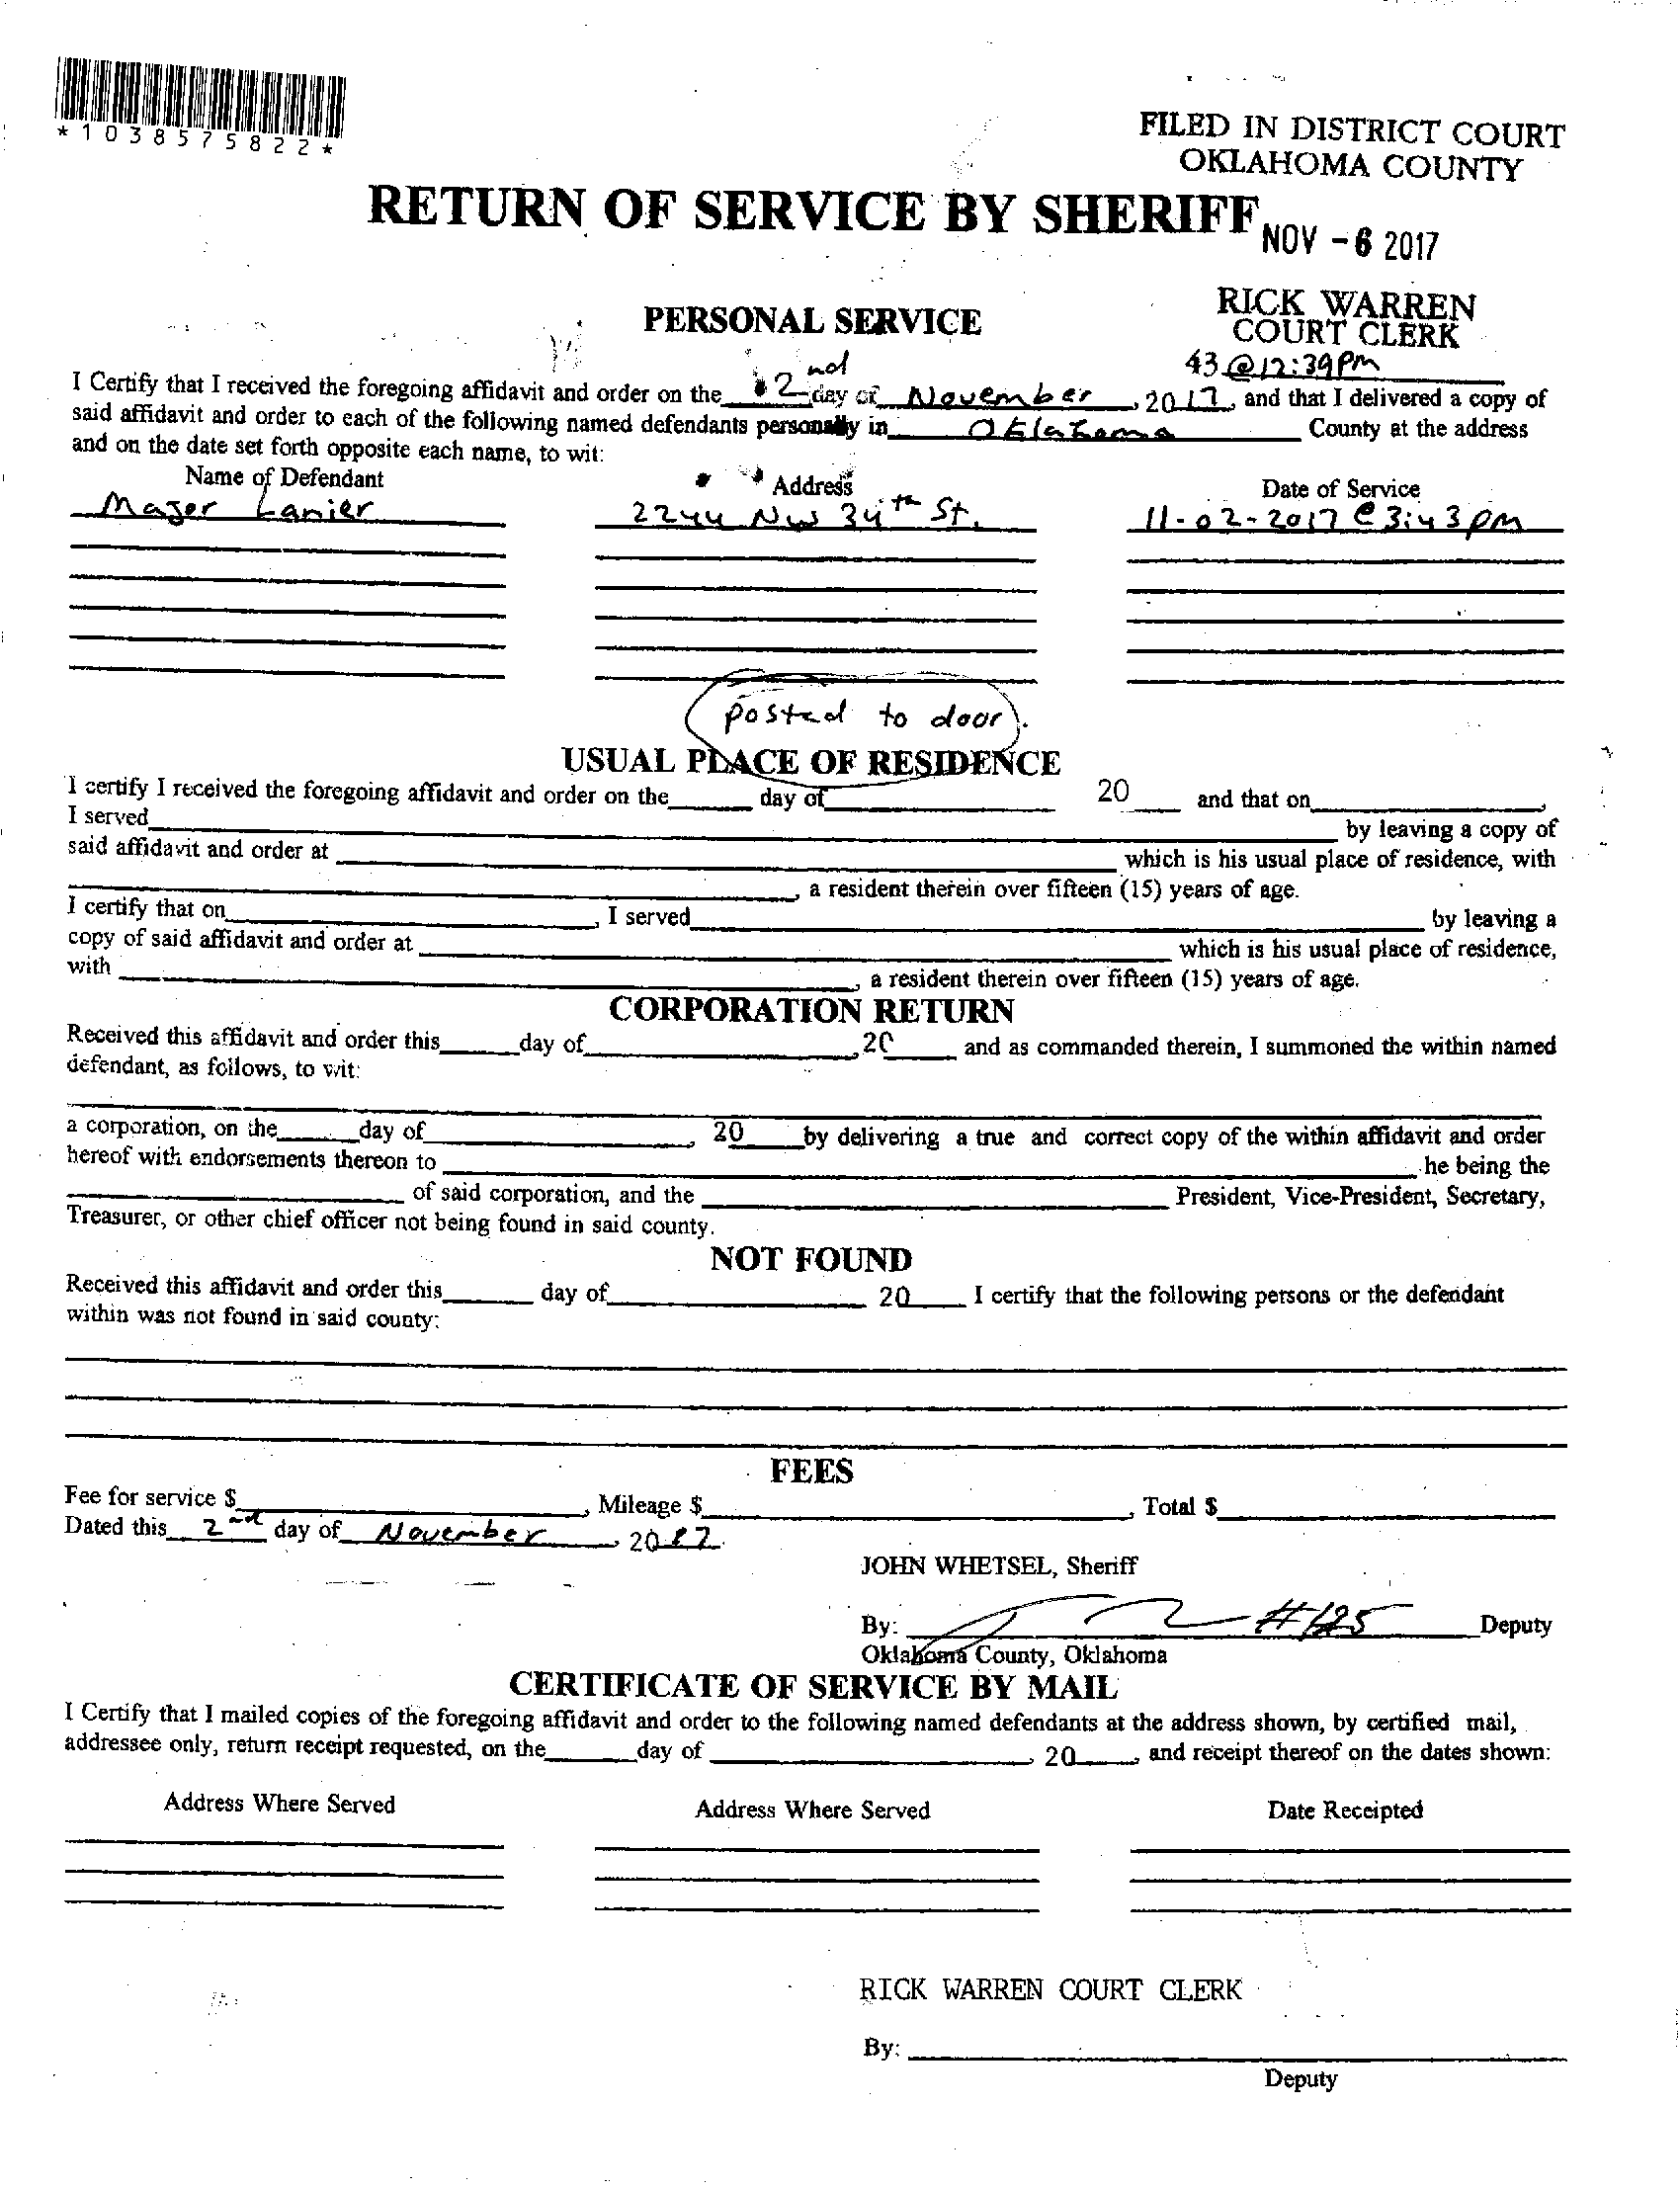 *1038575822*
FILED IN DISTRICT COURT
OKLAHOMA COUNTY
RETURN OF SERVICE BY SHERIFF
NOV -6 2017
RICK WARREN
COURT CLERK
43 @ 12:39 PM
PERSONAL SERVICE
I Certify that I received the foregoing affidavit and order on the 2nd day of November, 2017, and that I delivered a copy of
said affidavit and order to each of the following named defendants personally in Oklahoma County at the address
and on the date set forth opposite each name, to wit:
Name of Defendant Address Date of Service
Major Lanier 2244 NW 34th St. 11-02-2017 @ 3:43 pm
posted to door.
USUAL PLACE OF RESIDENCE
I certify I received the foregoing affidavit and order on the day of 20 and that on ,
I served by leaving a copy of
said affidavit and order at which is his usual place of residence, with
, a resident therein over fifteen (15) years of age.
I certify that on , I served by leaving a
copy of said affidavit and order at which is his usual place of residence,
with , a resident therein over fifteen (15) years of age.
CORPORATION RETURN
Received this affidavit and order this day of , 20 and as commanded therein, I summoned the within named
defendant, as follows, to wit:
a corporation, on the day of , 20 by delivering a true and correct copy of the within affidavit and order
hereof with endorsements thereon to he being the
of said corporation, and the President, Vice-President, Secretary,
Treasurer, or other chief officer not being found in said county.
NOT FOUND
Received this affidavit and order this day of 20 I certify that the following persons or the defendant
within was not found in said county:
FEES
Fee for service $ , Mileage $ , Total $
Dated this 2nd day of November, 2017.
JOHN WHETSEL, Sheriff
By: #125 Deputy
Oklahoma County, Oklahoma
CERTIFICATE OF SERVICE BY MAIL
I Certify that I mailed copies of the foregoing affidavit and order to the following named defendants at the address shown, by certified mail,
addressee only, return receipt requested, on the day of , 20 , and receipt thereof on the dates shown:
Address Where Served Address Where Served Date Receipted
RICK WARREN COURT CLERK
By:
Deputy